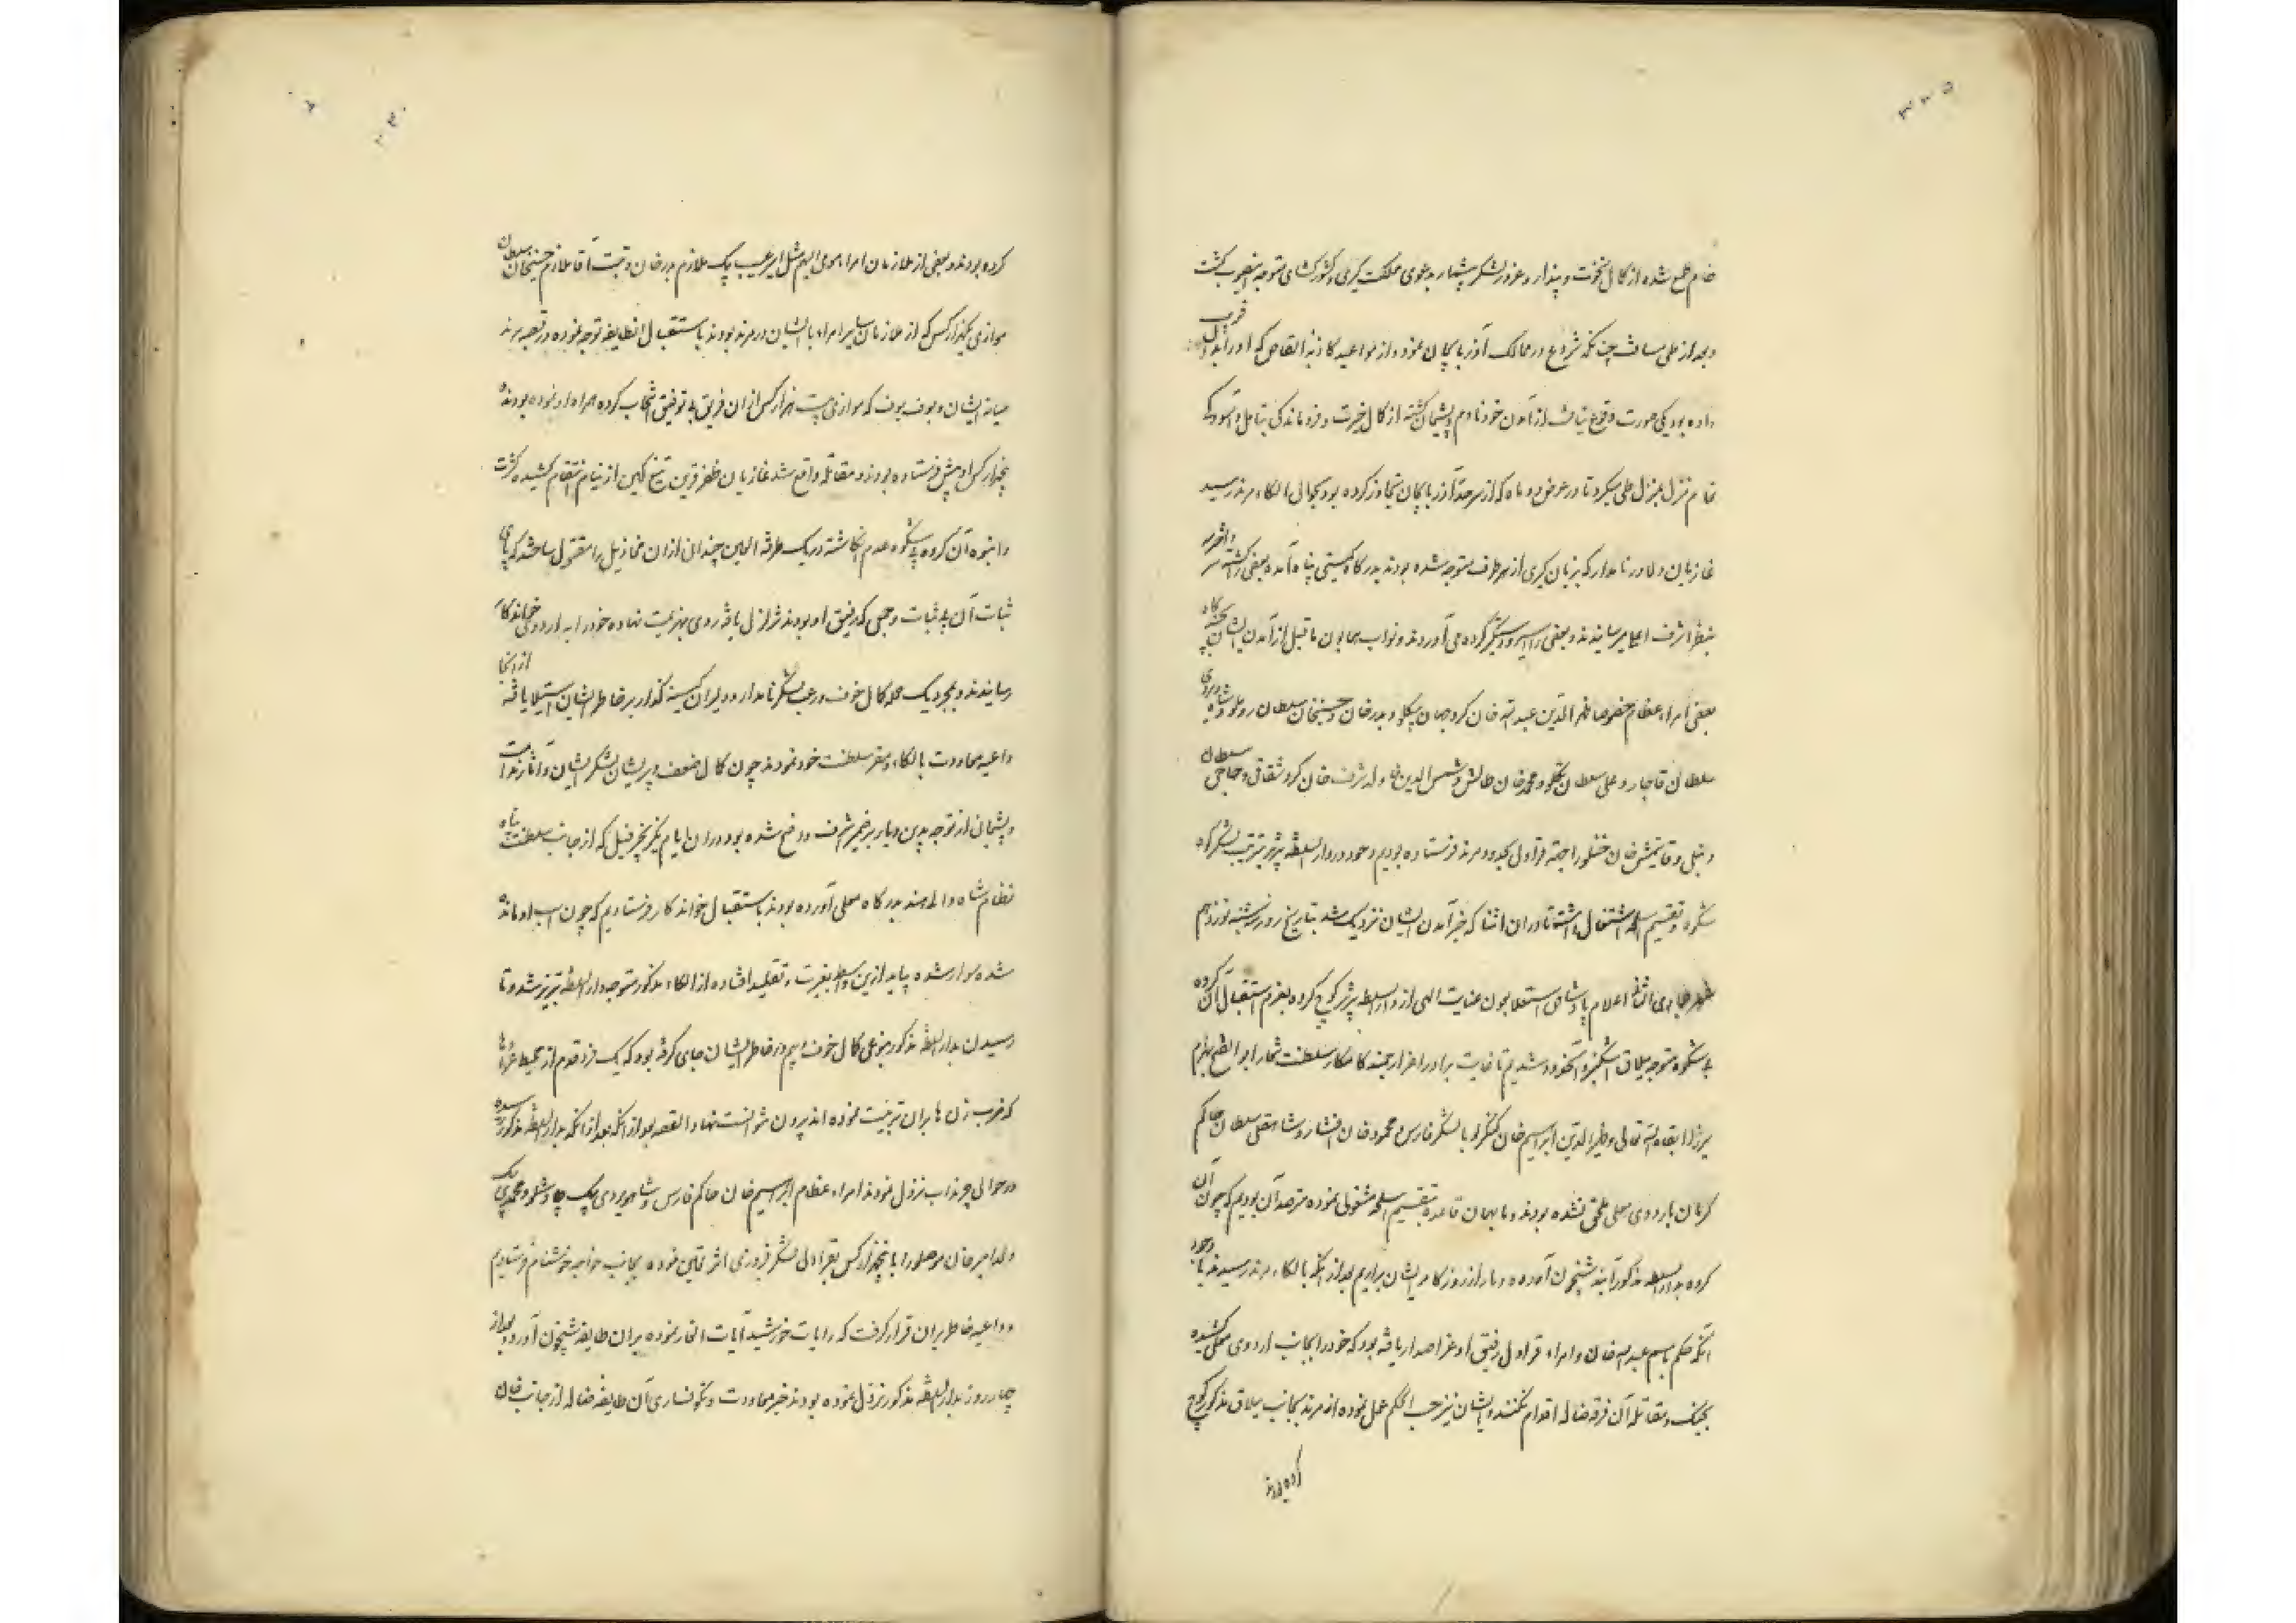 خام طمع شده از کمال نخوت و پندار و غرور لشکر بیشمار بدعوی مملکت گیری و کشورگشای متوجه کشت
و بعد از طی مسافت چنانکه شروع در ممالک آذربایجان نموده و از مواعید کاذبه القاص که او را
داده بود یکی صورت وقوع نیافت از آمدن خود نادم و پشیمان گشته از کمال حیرت و فروماندگی بتامل و آسودگی
تمام منزل بمنزل طی میکرد تا در عرض دو ماه که از سرحد آذربایجان تجاوز کرده بود بحوالی الکاء مرند رسید
غازیان و دلاور نامدار که بزبان گیری از هر طرف متوجه شده بودند بدرگاه گیتی پناه آمده بعضی را کشته سر
بنظر اشرف اعلا میرسانیدند و بعضی را اسیر و دستگیر کرده می آوردند و نواب همایون ما قبل از آمدن ایشان
بعضی امراء عظام خصوصا ظهر الدین عبدالله خان و بدر خان و حسینخان سلطان روملو و شاه ویردی
سلطان قاجار و علی سلطان تکلو و محمدخان طالش و شمس الدین خان ولد شرف خان کرد و شقاقی و حاجی سلطان
دنبلی و قایتمش خان را جهة قراولی بحدود مرند فرستاده بودیم و خود در دار السلطنه تبریز بترتیب لشکر
شکوه و تقسیم اسلحه اشتغال داشتیم تا در آن اثنا که خبر آمدن ایشان نزدیک شد بتاریخ روز سه شنبه نوزدهم
اعلام عنایت الهی از دار السلطنه تبریز کوچ کرده بعزم استقبال آن گروه
بی شکوه متوجه ییلاق اشکنبر و شدیم تا غایت برادر اعز ارجمند کامکار سلطنت شعار ابو الفتح بهرام
میرزا ابقاه الله تعالی و ظهیر الدین ابراهیم خان با لشکر فارس و محمود خان افشار و شاهقلی سلطان حاکم
کرمان باردوی معلی ملحق نشده بودند و ما بهمان قاعده بتقسیم اسلحه مشغولی نموده مترصد آن بودیم که چون آن
گروه بدار السلطنه مذکور آیند شبیخون آورده دمار از روزگار ایشان برآریم بعد از آنکه بالکاء مرند رسیدند با وجود
آنکه حکم باسم عبدالله خان و امراء قراول رفیق او عز اصدار یافته بود که خود را بجانب اردوی معلی کشیده
بجنگ و مقاتله آن فرقه ضاله اقدام نکنند و ایشان نیز حسب الحکم عمل نموده از مرند بجانب ییلاق مذکور کوچ
کرده بودند
کرده بودند و بعضی از ملازمان امراء مومی الیهم مثل امیر غیب بیک ملازم بدر خان و آقا ملازم حسینخان سلطان
موازی یکهزار کس که از ملازمان سایر امراء با ایشان در مرند بودند باستقبال آنطایفه توجه نموده در قصبه مرند
میانه ایشان و که موازی بیست هزار کس از آن فریق بی توفیق انتخاب کرده همراه او نموده بودند
پنجهزار کس را پیش فرستاده بودند مقاتله واقع شد غازیان ظفر قرین تیغ کین از نیام انتقام کشیده کثرت
و انبوه آن گروه بی شکوه عدم انگاشته در یک طرفة العین چندان از آن مخاذیل را مقتول ساختند که پای
ثبات آن بی ثبات و جمعی که رفیق او بودند تزلزل یافته روی بهزیمت نهاده خود را به اردو
رسانیدند و بمجرد یک حمله کمال خوف و رعب لشکر نامدار و دلیران کینه گذار بر خاطر ایشان استیلا یافته از آنجا
داعیه معاودت بالکاء و مقر سلطنت خود نمودند چون کمال ضعف و پریشان لشکر ایشان و آثار ندامت
و پشیمان از توجه بدین دیار بر ضمیر اشرف واضح شده بود در آن ایام یکزنجیر فیل که از جانب سلطنت پناه
نظام شاه والی هند بدرگاه معلی آورده بودند باستقبال خواندکار فرستادیم که چون اسب او مانده
شده سوار شده بیاید از این واسطه بغیرت و تقلید افتاده از الکاء مذکور متوجه دار السلطنه تبریز شد و تا
رسیدن بدار السلطنه مذکور بنوعی کمال خوف و بیم در خاطر ایشان جای گرفته بود که یک فرد قدم از محیط
که بر آن ترتیب نموده اند بیرون نتوانست نهاد القصه بعد از آنکه بدار السلطنه مذکور رسیده
در حوالی چرنداب نزول نمودند امراء عظام ابراهیم خان حاکم فارس و شاهویردی بیک چاوشلو و محمدی بیک
ولد امیر خان موصلو را با پنجهزار کس بقراولی لشکر فیروزی اثر تعیین نموده بجانب فرستادیم
و داعیه خاطر بر آن قرار گرفت که رایات خورشید آیات نموده بر آن طایفه شبیخون آورد و بعد از
چهار روز بدار السلطنه مذکور نزول نموده بودند خبر معاودت و نگونساری آن طایفه ضاله از جانب خان